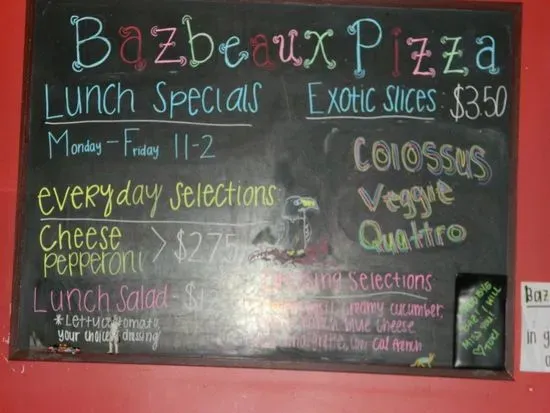 Bazbeaux Pizza
Lunch Specials
Monday - Friday 11-2
Exotic Slices: $3.50
Colossus
Veggie
Quattro
everyday selections:
Cheese
pepperoni > $2.75
Lunch Salad - $
*Lettuce, tomato,
your choice dressing
selections
creamy cucumber,
blue cheese
low cal french
I WILL
MISS YOU!
Baz
in